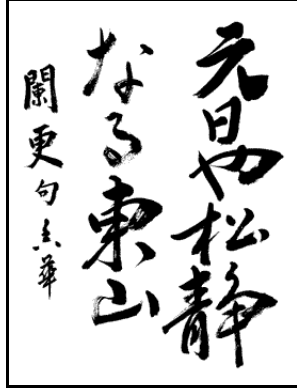 元日や松静
なる東山
闌更句 玄華